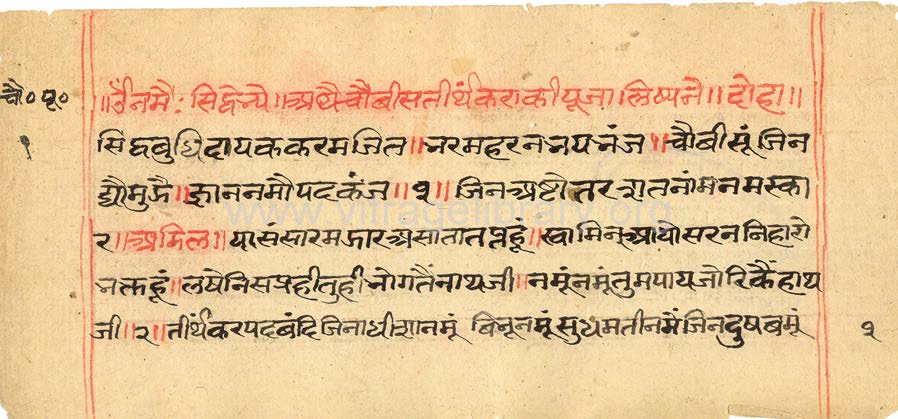 चौ० पू०
१
॥ॐनमैः सिद्धेभ्ये॥अथै चौबीसतीर्थंकराकी पूजा लिष्यते॥दोहा॥
सिद्धबुद्धिदायक करमजित॥भरमहरन भयभंज॥चौबीसूं जिन
द्यौ मुझै॥ज्ञान नमौ पदकंज॥१॥जिन अष्टोतर शतनांम नमस्का
र॥अडिल॥या संसार मझार असाता तप्त हूं॥स्वामिन आयो सरन निहारो
भक्त हूं॥लषे निसप्रही तुही भोगतैं नाथजी॥नमूं नमूं तुम पाय जोरिकैं हाथ
जी॥२॥तीर्थंकर पद बंदि जिनाधीश नमूं बिभू नमूं सुध मती नमैं जिन दुष बमूं
१
www.vitragelibrary.org